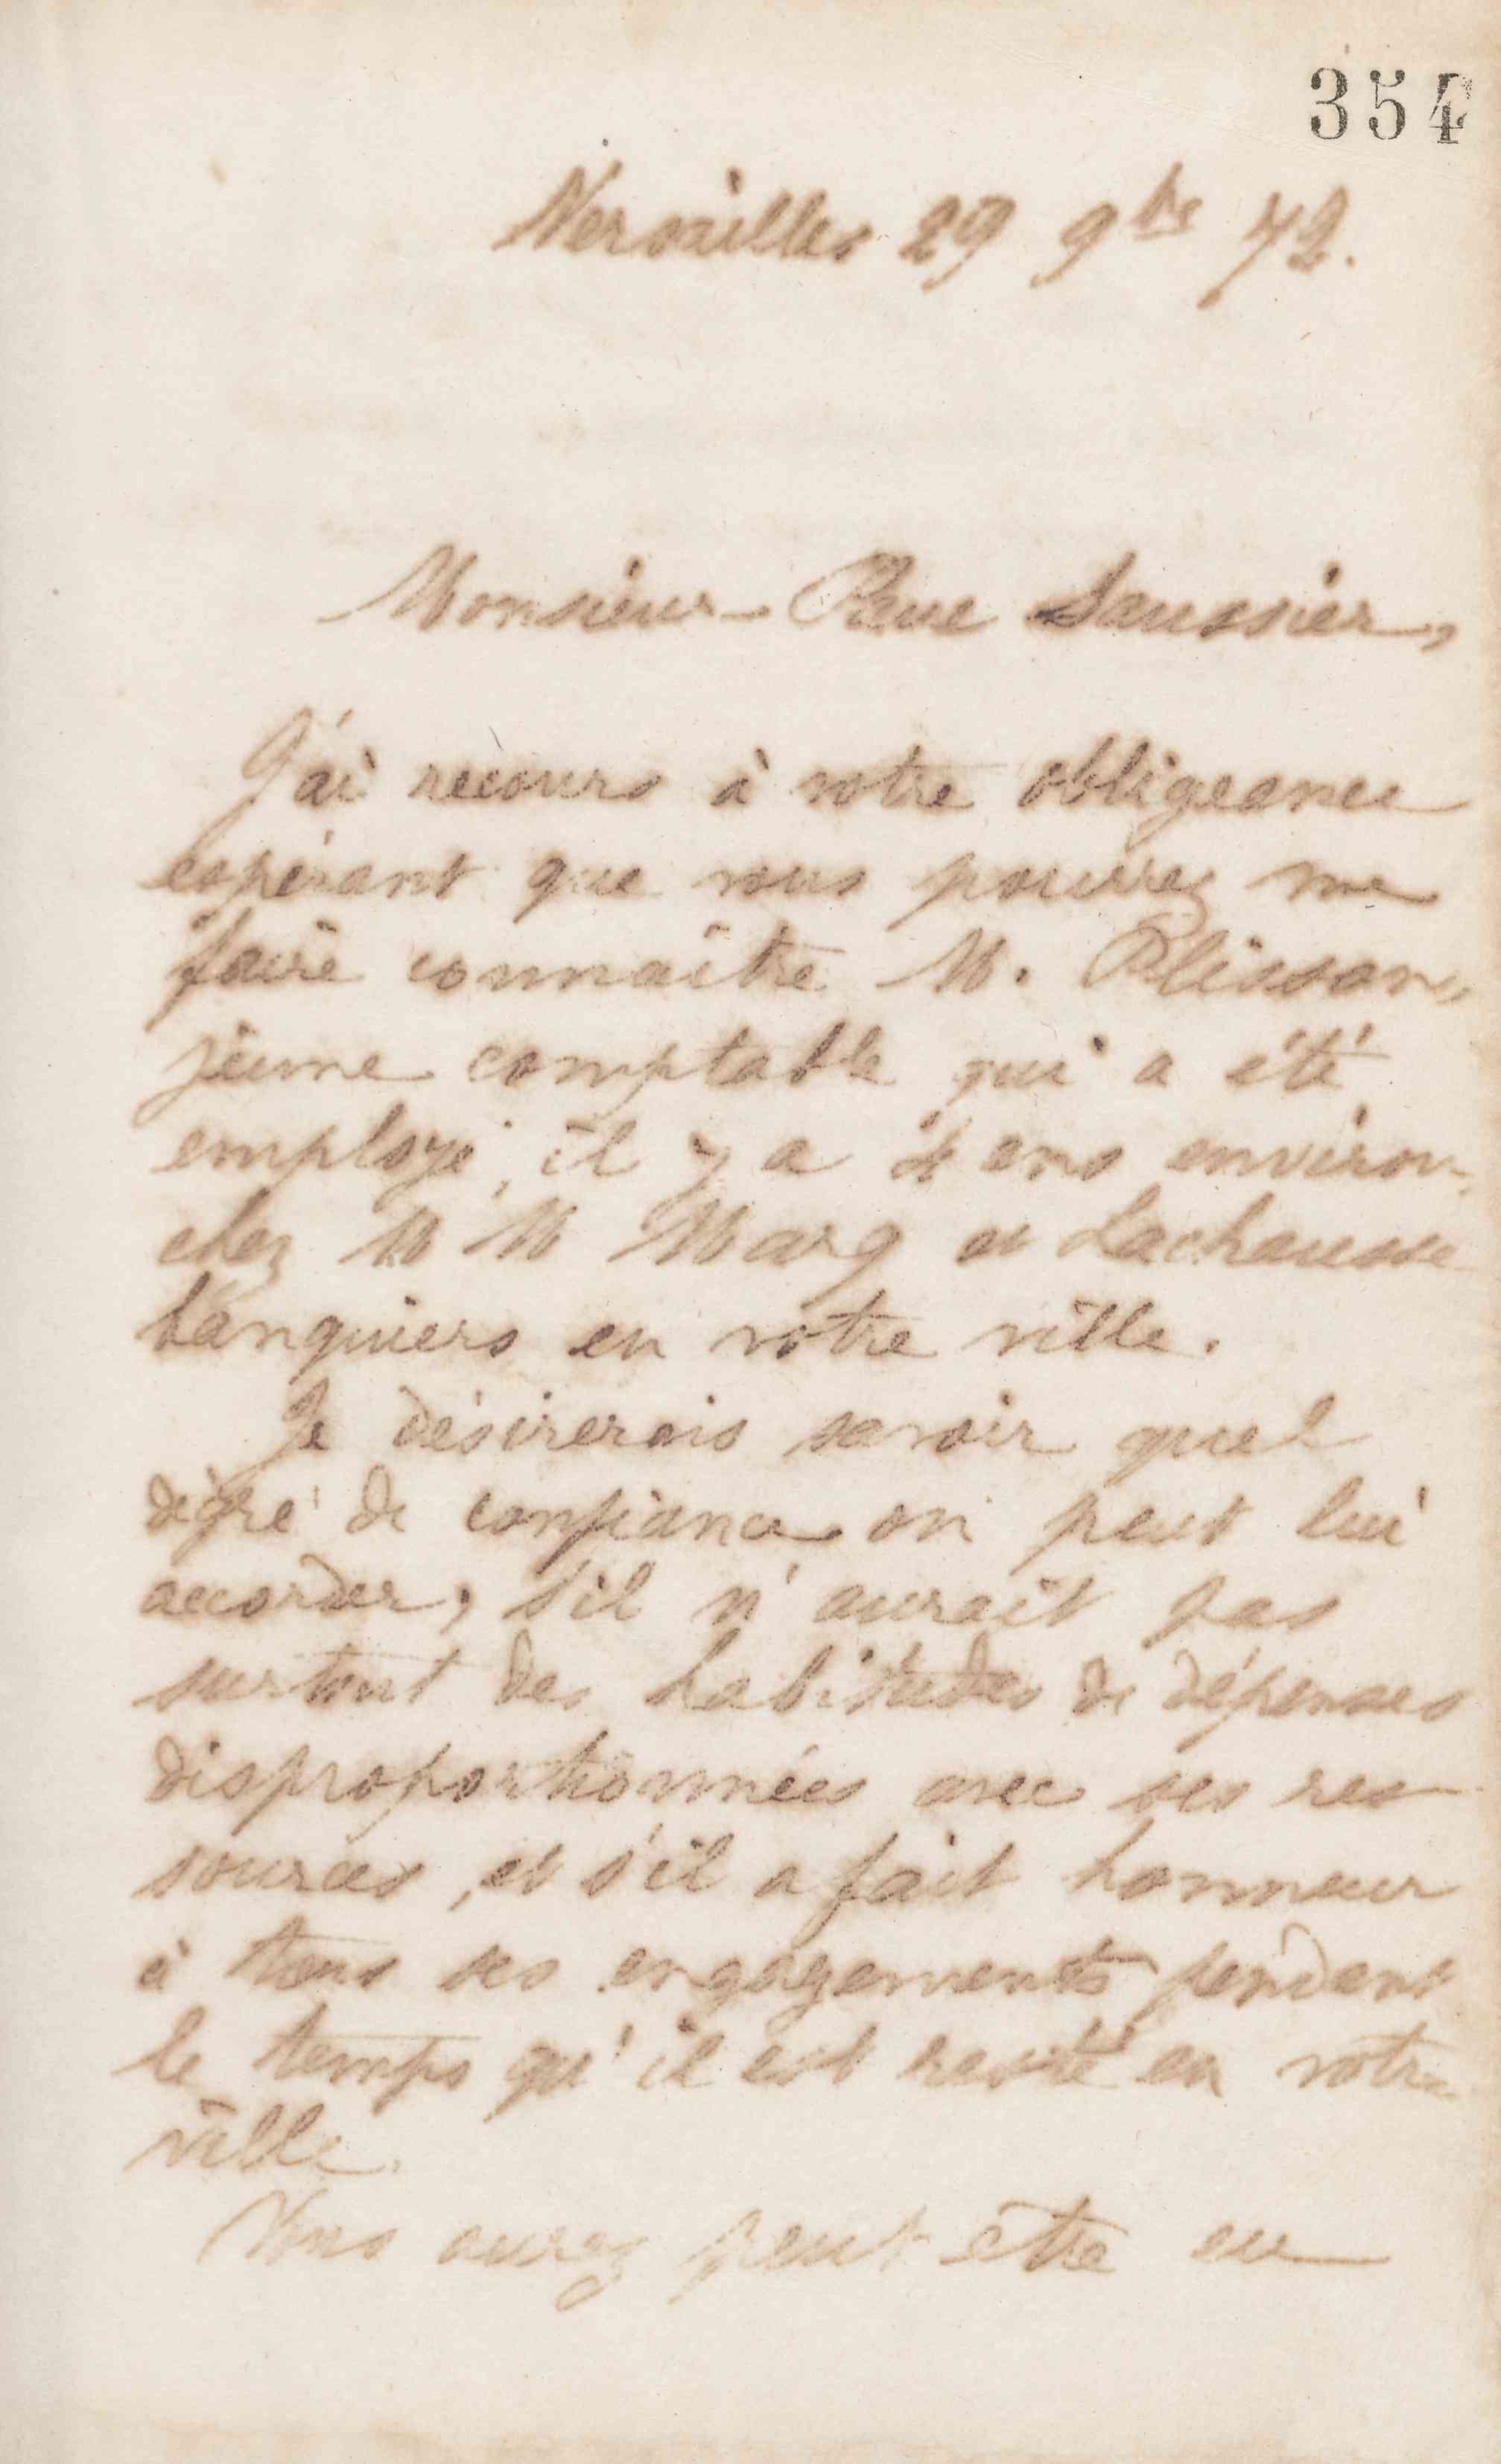 354
Versailles 29 9bre 72.
Monsieur Saussier,
J'ai recours à votre obligeance
espérant que vous pourrez me
faire connaître M. Plisson,
jeune comptable qui a été
employé, il y a ans environ
chez MM et Lachausse
banquiers en votre ville.
Je désirerais savoir quel
dégré de confiance on peut lui
accorder, s'il n'aurait pas
surtout des habitudes de dépenses
disproportionnées avec ses res
sources, et s'il a fait honneur
à tous ses engagements pendant
le temps qu'il est resté en votre
ville.
Vous aurez peut être eu